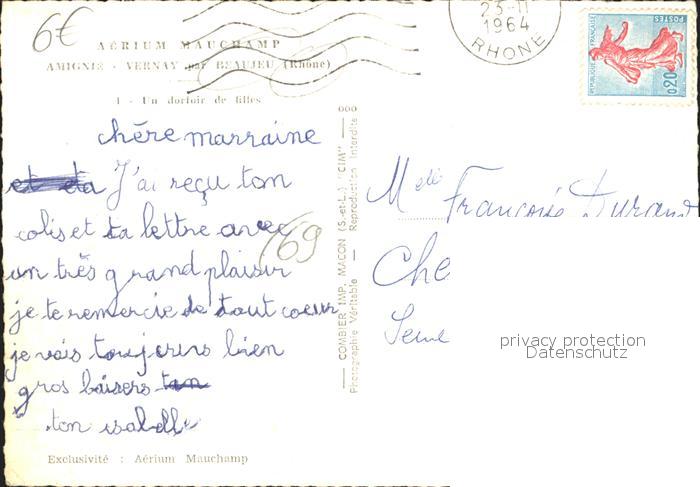 6€
AÉRIUM MAUCHAMP
AMIGNIÉ - VERNAY par BEAUJEU (Rhône)
1 - Un dortoir de filles
chère marraine
et ta J'ai reçu ton
colis et ta lettre avec
un très grand plaisir
je te remercie de tout coeur
je vais toujours bien
gros baisers ton
ton isabelle
(69
Exclusivité : Aérium Mauchamp
COMBIER IMP. MACON (S.-et-L.) "CIM"
Photographie Véritable — Reproduction Interdite
23-11
1964
RHONE
REPUBLIQUE FRANÇAISE
POSTES
0,20
Melle Françoise Durand
Che
Seine
privacy protection
Datenschutz